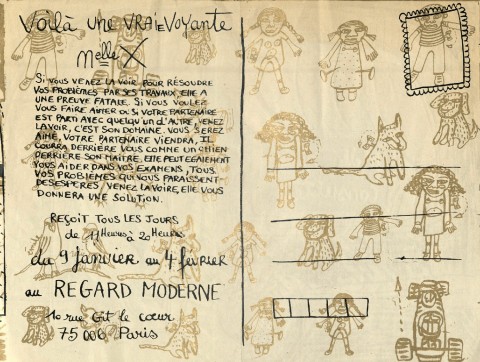 Voilà une VRAIE VOYANTE
Melle X
Si vous venez la voir pour résoudre
vos problèmes par ses travaux, elle a
une preuve fatale. Si vous voulez
vous faire aimer ou si votre partenaire
est parti avec quelqu'un d'autre, venez
la voir, c'est son domaine. Vous serez
aimé, votre partenaire viendra, il
courra derrière vous comme un chien
derrière son maître. Elle peut également
vous aider dans vos examens, tous
vos problèmes qui vous paraissent
desesperés. Venez la voire, elle vous
donnera une solution.
Reçoit tous les jours
de 11 Heures à 20 Heures
du 9 janvier au 4 février
au REGARD MODERNE
10 rue Gît le cœur
75006 Paris